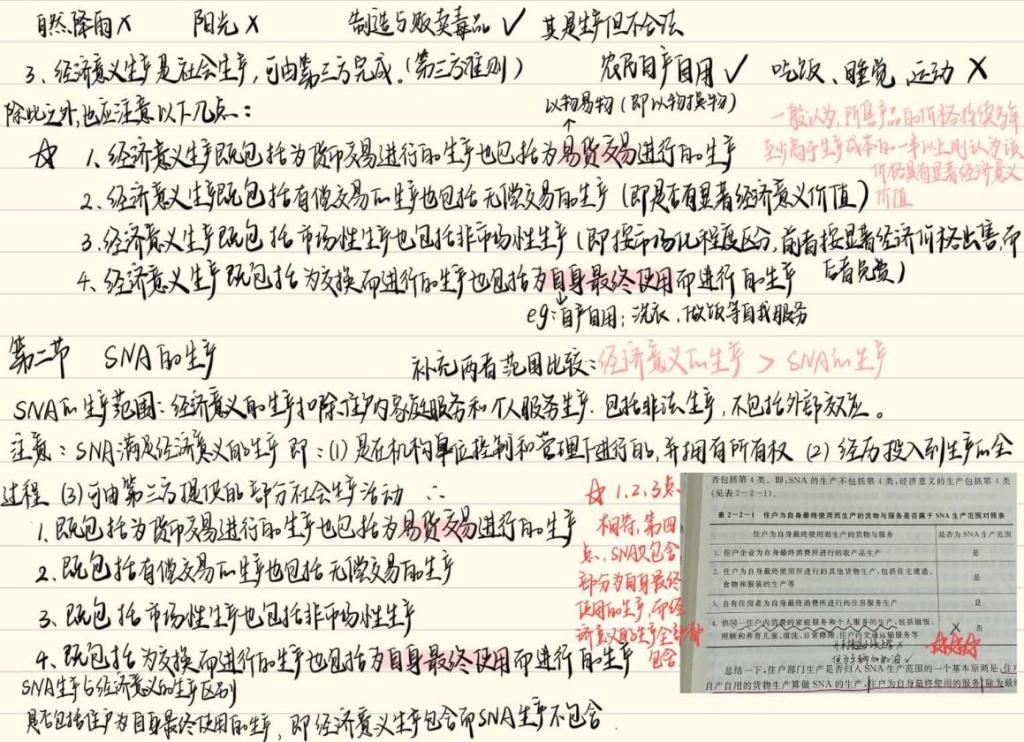 自然降雨 × 阳光 × 制造与贩卖毒品 ✓ 其是生产但不合法
3、经济意义生产是社会生产，可由第三方完成。(第三方准则) 农产自产自用 ✓ 吃饭、睡觉、运动 ×
除此之外，也应注意以下几点：
以物易物（即以物换物）
一般认为，所售产品的价格持续多年
至少高于生产成本的一半以上则认为该
价格具有显著经济意义
价值
☆ 1、经济意义生产既包括为货币交易进行的生产也包括为易货交易进行的生产
2、经济意义生产既包括有偿交易的生产也包括无偿交易的生产（即是否有显著经济意义价值）
3、经济意义生产既包括市场性生产也包括非市场性生产（即按市场化程度区分，前者按显著经济价格出售，而
后者免费）
4、经济意义生产既包括为交换而进行的生产也包括为自身最终使用而进行的生产
eg：自产自用；洗衣、做饭等自我服务
第二节 SNA的生产
补充两者范围比较：经济意义的生产 > SNA的生产
SNA的生产范围：经济意义的生产扣除住户内家庭服务和个人服务生产．包括非法生产，不包括外部效应。
注意：SNA满足经济意义的生产 即：(1) 是在机构单位控制和管理下进行的，并拥有所有权 (2) 经历投入到生产的全
过程 (3) 可由第三方提供的部分社会生产活动 ∴
1、既包括为货币交易进行的生产也包括为易货交易进行的生产
2、既包括有偿交易的生产也包括无偿交易的生产
3、既包括市场性生产也包括非市场性生产
4、既包括为交换而进行的生产也包括为自身最终使用而进行的生产
☆ 1，2，3点
相符，第四
点，SNA只包含
部分为自身最终
使用的生产，而经
济意义的生产全部都
包含
SNA生产与经济意义的生产区别
是否包括住户为自身最终使用的生产，即经济意义生产包含而SNA生产不包含．
否包括第 4 类。即：SNA 的生产不包括第 4 类，经济意义的生产包括第 4 类
（见表 2-2-1）。
表 2-2-1 住户为自身最终使用而生产的货物与服务是否属于 SNA 生产范围对照表
住户为自身最终使用而生产的货物与服务 是否为 SNA 生产范围
1. 住户企业为自身最终消费所进行的农产品生产 是
2. 住户为自身最终使用所进行的其他货物生产，包括住宅建造、
食物和服装的生产等 是
3. 自有住房者为自身最终消费所进行的住房服务生产 是
4. 供同一住户内消费的家庭服务和个人服务的生产，包括做饭、
照顾和养育儿童、清洗、日常修理、住户内交通运输服务等 × 否
☆☆☆
总结一下，住户部门生产是否归入 SNA 生产范围的一个基本原则是：住
自产自用的货物生产算做 SNA 的生产，住户为自身最终使用的服务（除为最